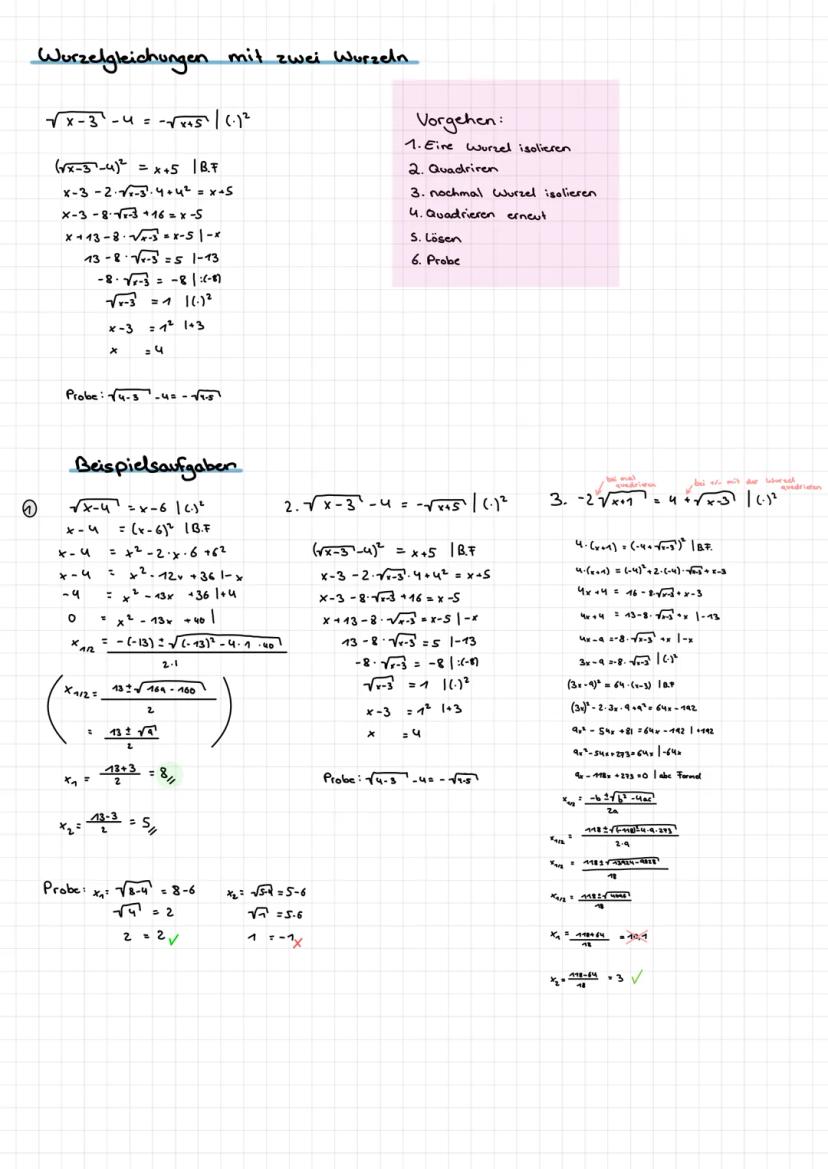 Wurzelgleichungen mit zwei Wurzeln
√(x-3) - 4 = -√(x+5) | (·)²
(√(x-3) - 4)² = x+5 | B.F
x-3 - 2·√(x-3)·4 + 4² = x+5
x-3 - 8·√(x-3) + 16 = x-5
x+13 - 8·√(x-3) = x-5 | -x
13 - 8·√(x-3) = 5 | -13
-8·√(x-3) = -8 | :(-8)
√(x-3) = 1 | (·)²
x-3 = 1² | +3
x = 4
Probe: √(4-3) - 4 = -√(4·5)
Vorgehen:
1. Eine Wurzel isolieren
2. Quadriren
3. nochmal Wurzel isolieren
4. Quadrieren erneut
5. Lösen
6. Probe
Beispielsaufgaben
① √(x-4) = x-6 | (·)²
x-4 = (x-6)² | B.F
x-4 = x² - 2·x·6 + 6²
x-4 = x² - 12x + 36 | -x
-4 = x² - 13x + 36 | +4
0 = x² - 13x + 40 |
x1/2 = (-(-13) ± √((-13)² - 4·1·40)) / (2·1)
(x1/2 = (13 ± √(169 - 160)) / 2
= (13 ± √9) / 2)
x₁ = (13+3)/2 = 8
x₂ = (13-3)/2 = 5
Probe: x₁ = √(8-4) = 8-6
√4 = 2
2 = 2 ✓
x₂ = √(5-4) = 5-6
√1 = 5-6
1 = -1 x
2. √(x-3) - 4 = -√(x+5) | (·)²
(√(x-3) - 4)² = x+5 | B.F
x-3 - 2·√(x-3)·4 + 4² = x+5
x-3 - 8·√(x-3) + 16 = x-5
x+13 - 8·√(x-3) = x-5 | -x
13 - 8·√(x-3) = 5 | -13
-8·√(x-3) = -8 | :(-8)
√(x-3) = 1 | (·)²
x-3 = 1² | +3
x = 4
Probe: √(4-3) - 4 = -√(4·5)
bei mal quadrieren
bei +/- mit der Wurzel quadrieren
3. -2√(x+1) = 4 + √(x-3) | (·)²
4·(x+1) = (-4+√(x-3))² | B.F.
4·(x+1) = (-4)² + 2·(-4)·√(x-3) + x-3
4x+4 = 16 - 8·√(x-3) + x-3
4x+4 = 13 - 8·√(x-3) + x | -13
4x-9 = -8·√(x-3) + x | -x
3x-9 = -8·√(x-3) | (·)²
(3x-9)² = 64·(x-3) | B.F
(3x)² - 2·3x·9 + 9² = 64x - 192
9x² - 54x + 81 = 64x - 192 | +192
9x² - 54x + 273 = 64x | -64x
9x - 118x + 273 = 0 | abc Formel
x1/2 = (-b ± √(b² - 4ac)) / 2a
x1/2 = (118 ± √((-118)² - 4·9·273)) / (2·9)
x1/2 = (118 ± √(13924 - 9828)) / 18
x1/2 = (118 ± √4096) / 18
x₁ = (118+64)/18 = 10,1
x₂ = (118-64)/18 = 3 ✓